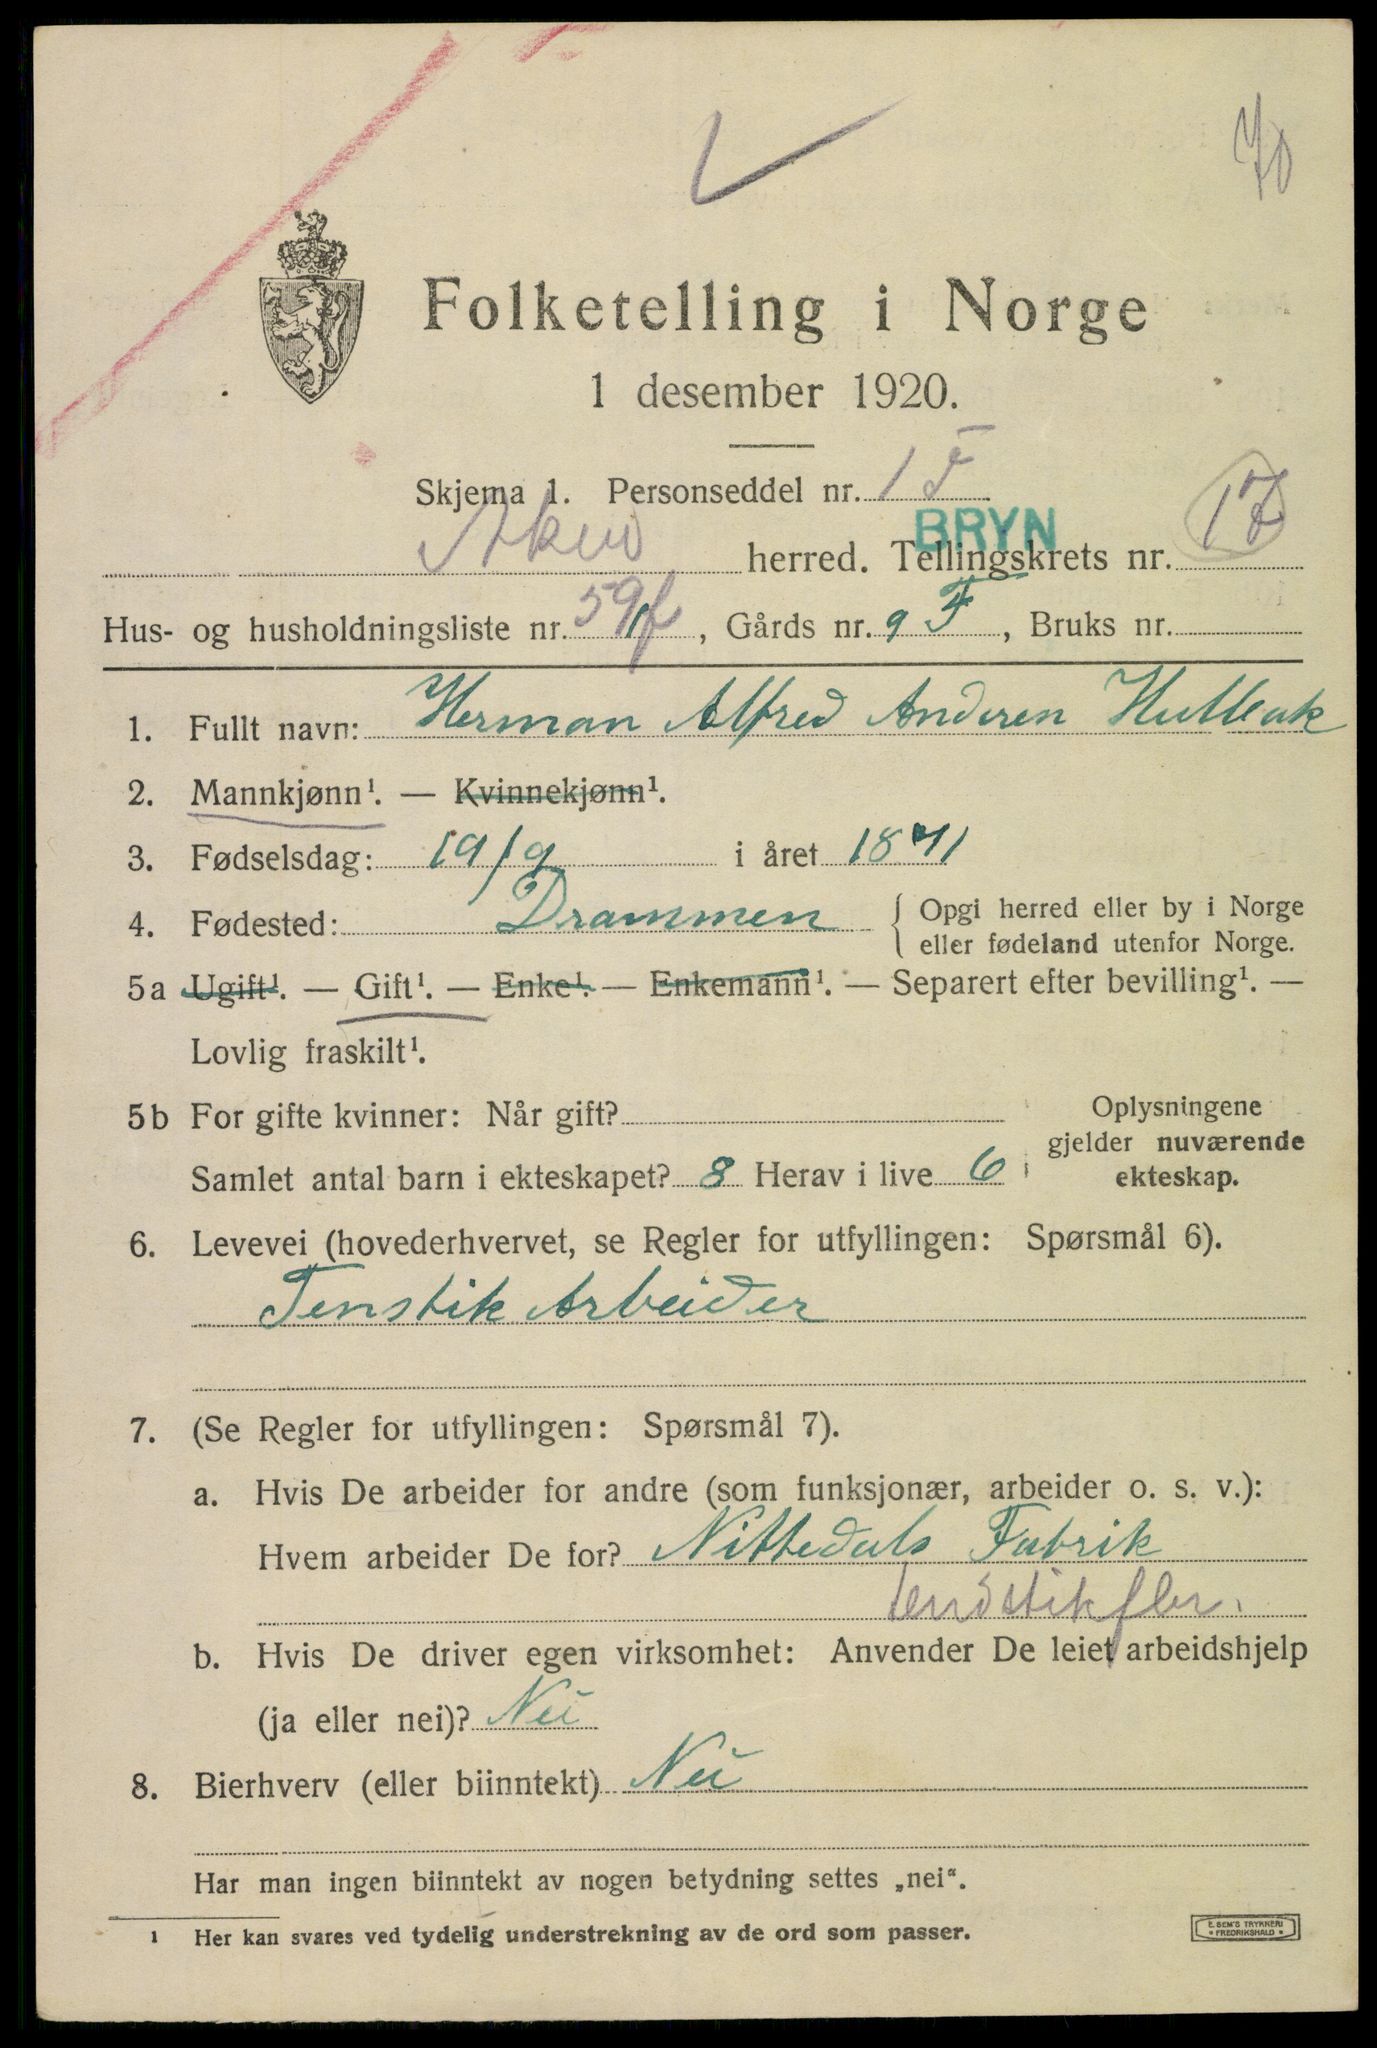 70
Folketelling i Norge
1 desember 1920.
Skjema 1. Personseddel nr. 1 F
BRYN
Aker herred. Tellingskrets nr. 17
Hus- og husholdningsliste nr. 59f, Gårds nr. 9 F, Bruks nr.
1. Fullt navn: Herman Alfred Andersen Hulbak
2. Mannkjønn¹. — Kvinnekjønn¹.
3. Fødselsdag: 19/9 i året 1871
4. Fødested: Drammen { Opgi herred eller by i Norge
eller fødeland utenfor Norge.
5a Ugift¹. — Gift¹. — Enke¹. — Enkemann¹. — Separert efter bevilling¹. —
Lovlig fraskilt¹.
5b For gifte kvinner: Når gift?
Samlet antal barn i ekteskapet? 8 Herav i live 6
Oplysningene
gjelder nuværende
ekteskap.
6. Levevei (hovederhvervet, se Regler for utfyllingen: Spørsmål 6).
Tenstik Arbeider
7. (Se Regler for utfyllingen: Spørsmål 7).
a. Hvis De arbeider for andre (som funksjonær, arbeider o. s. v.):
Hvem arbeider De for? Nittedals Fabrik
tendstikfbr.
b. Hvis De driver egen virksomhet: Anvender De leiet arbeidshjelp
(ja eller nei)? Nei
8. Bierhverv (eller biinntekt) Nei
Har man ingen biinntekt av nogen betydning settes „nei“.
¹ Her kan svares ved tydelig understrekning av de ord som passer.
E. SEM'S TRYKKERI
* FREDRIKSHALD *